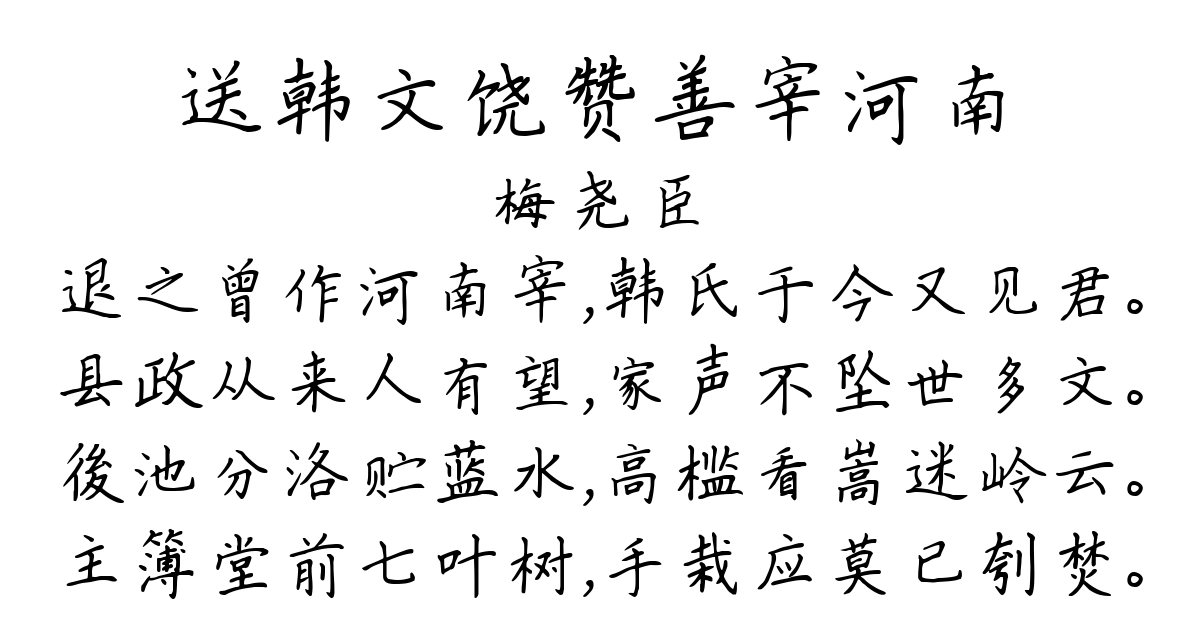 送韩文饶赞善宰河南
梅尧臣
退之曾作河南宰,韩氏于今又见君。
县政从来人有望,家声不坠世多文。
後池分洛贮蓝水,高槛看嵩迷岭云。
主簿堂前七叶树,手栽应莫已刳焚。